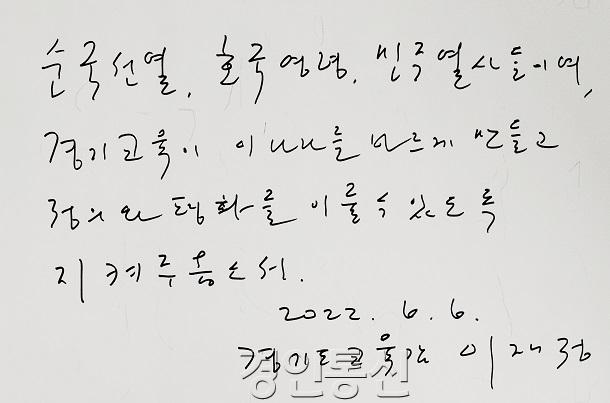 순국선열, 호국영령, 민주열사들이여,
경기교육이 이 나라를 바르게 만들고
정의와 평화를 이룰 수 있도록
지켜주옵소서.
2022. 6. 6.
경기도교육감 이재정
경인통신